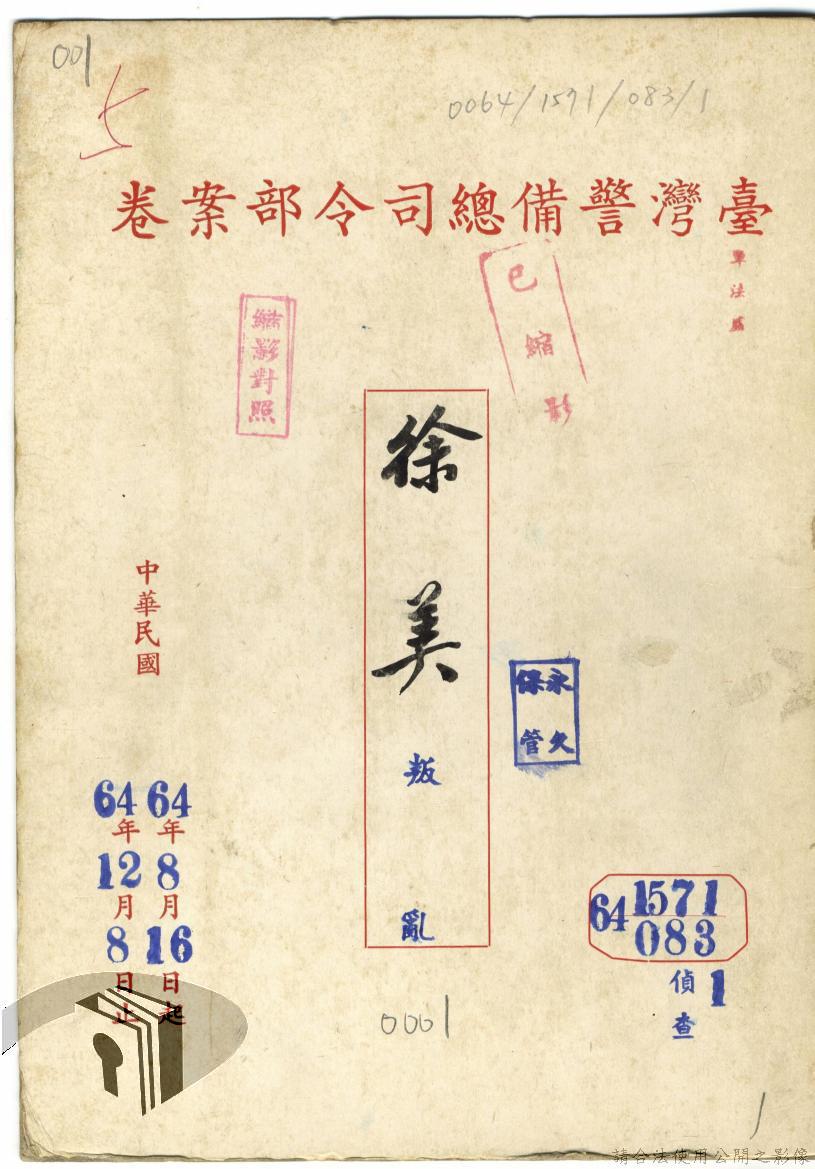 001
5
0064/1571/083/1
臺灣警備總司令部案卷
軍法處
已縮影
縮影對照
徐美叛亂
永久
保管
中華民國
64年8月16日起
64年12月8日止
64 1571
083
偵查
1
0001
1
請合法使用公開之影像